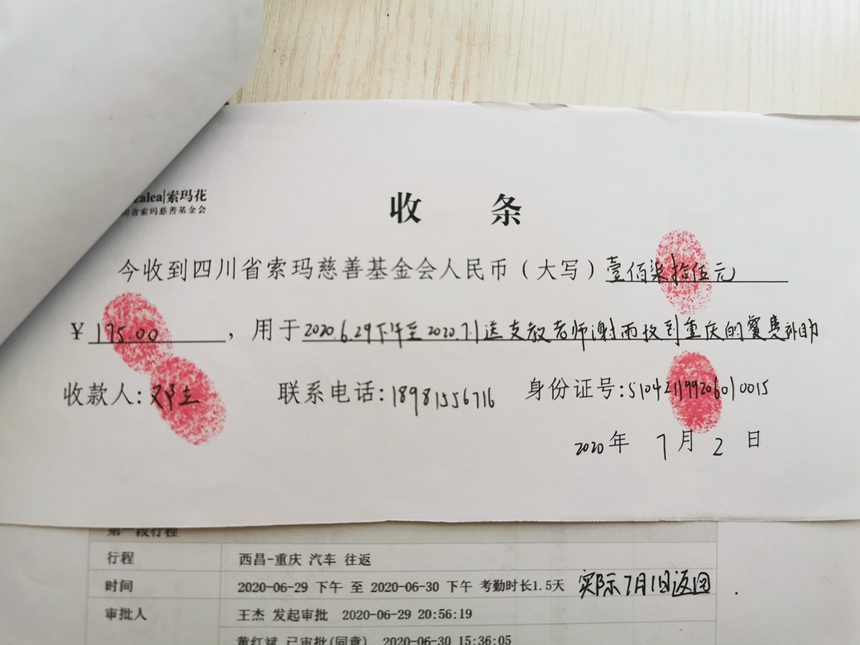 zalea|索玛花
川省索玛慈善基金会
收 条
今收到四川省索玛慈善基金会人民币（大写）壹佰柒拾伍元
¥ 175.00 ，用于2020.6.29下午至2020.7.1送支教老师谢雨杉到重庆的餐费补助
收款人: 邓立 联系电话:18981556716 身份证号:510421199206010015
2020年 7月 2 日
第一段行程
行程 西昌-重庆 汽车 往返
时间 2020-06-29 下午 至 2020-06-30 下午 考勤时长1.5天 实际7月1日返回.
审批人 王杰 发起审批 2020-06-29 20:56:19
黄红斌 已审批(同意) 2020-06-30 15:36:05